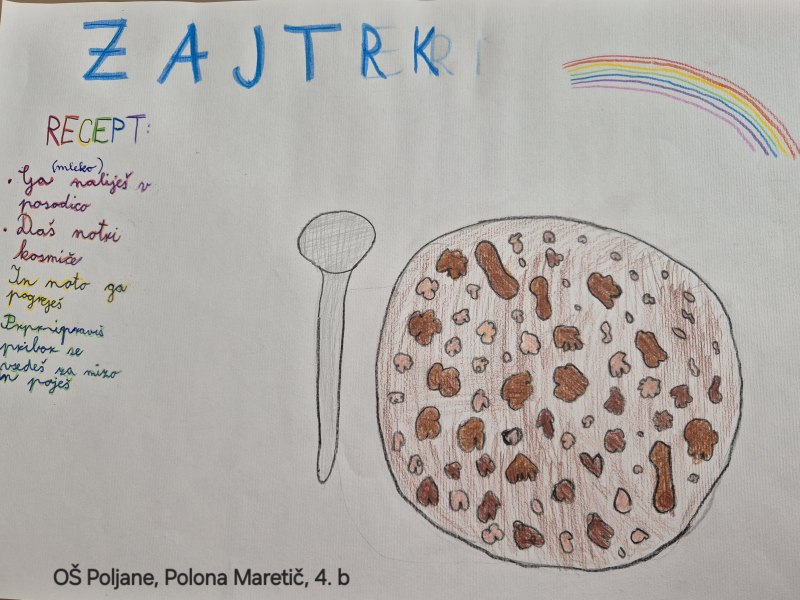 ZAJTRK
RECEPT:
(mleko)
• Ga naliješ v
posodico
• Daš notri
kosmiče
In nato ga
pogreješ
pripraviš
pribor se
vsedeš za mizo
in poješ
OŠ Poljane, Polona Maretič, 4. b